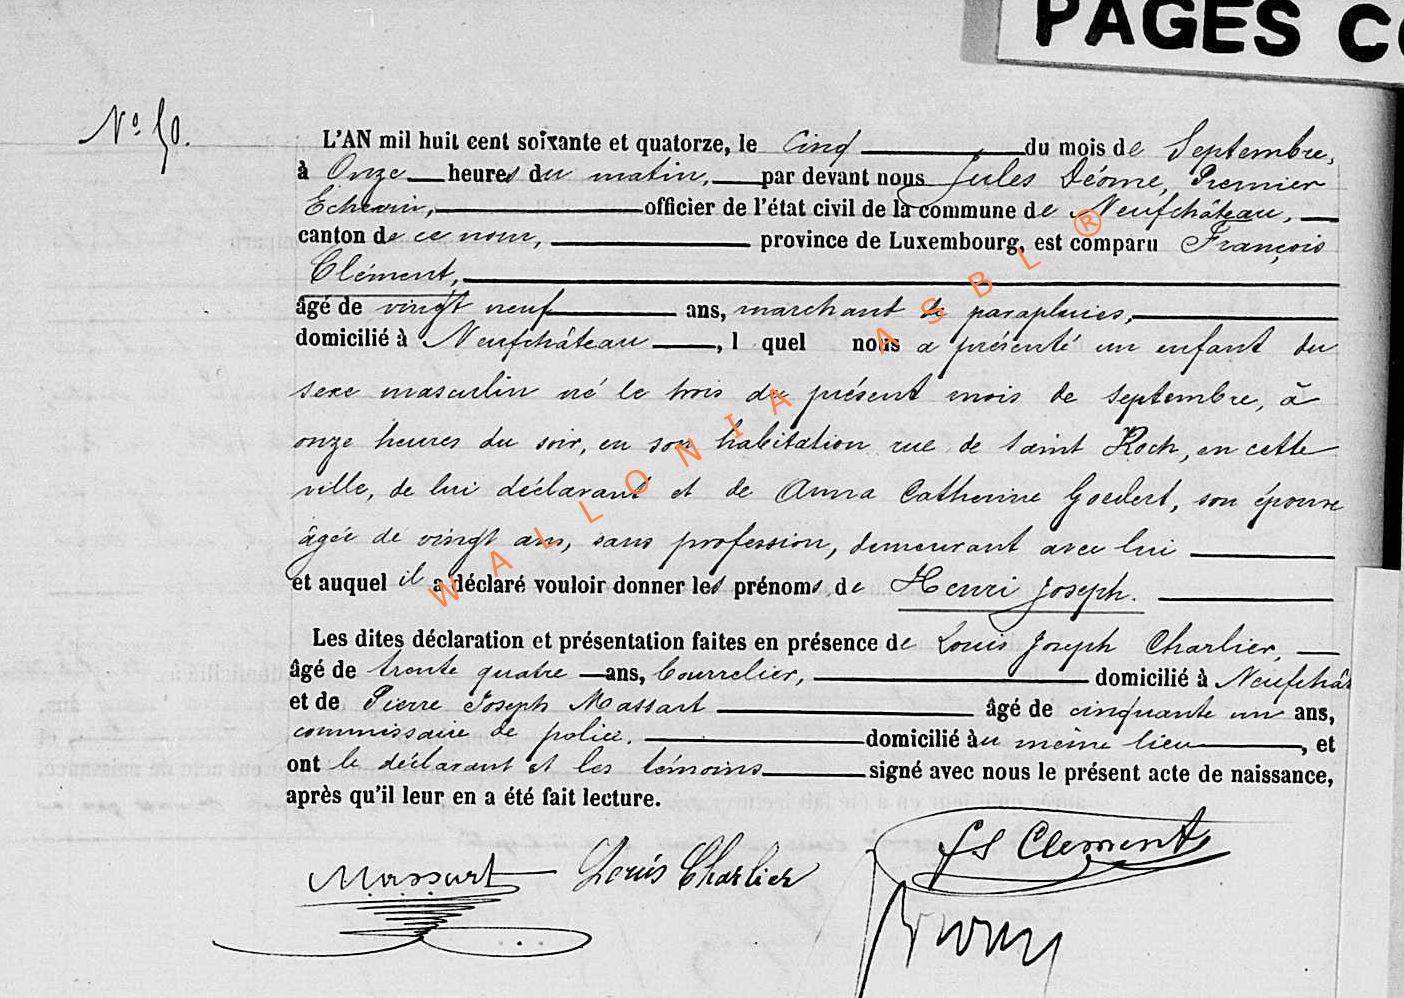 PAGES CO
N° 50.
L'AN mil huit cent soixante et quatorze, le cinq du mois de Septembre,
à Onze heures du matin, par devant nous Jules Déome, Premier
Echevin, officier de l'état civil de la commune de Neufchâteau,
canton de ce nom, province de Luxembourg, est comparu François
Clément,
âgé de vingt neuf ans, marchant de parapluies,
domicilié à Neufchâteau, l quel nous a présenté un enfant du
sexe masculin né le trois du présent mois de septembre, à
onze heures du soir, en son habitation rue de Saint Roch, en cette
ville, de lui déclarant et de Anna Catherine Goedert, son épouse
âgée de vingt ans, sans profession, demeurant avec lui
et auquel il a déclaré vouloir donner les prénoms de Henri Joseph.
Les dites déclaration et présentation faites en présence de Louis Joseph Charlier,
âgé de trente quatre ans, bourrelier, domicilié à Neufchât
et de Pierre Joseph Massart âgé de cinquante un ans,
commissaire de police, domicilié au même lieu, et
ont le déclarant et les témoins signé avec nous le présent acte de naissance,
après qu'il leur en a été fait lecture.
Massart Louis Charlier fs Clement
WALLONIA ASBL ®